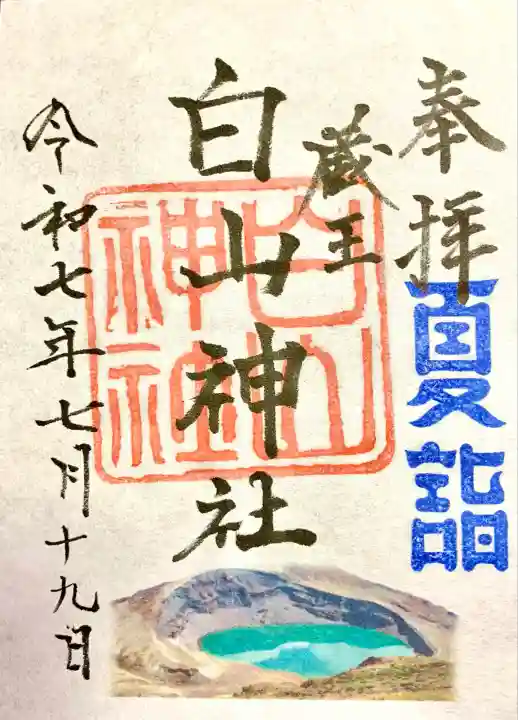 奉拝
夏詣
蔵王
白山神社
白山神社
令和七年七月十九日